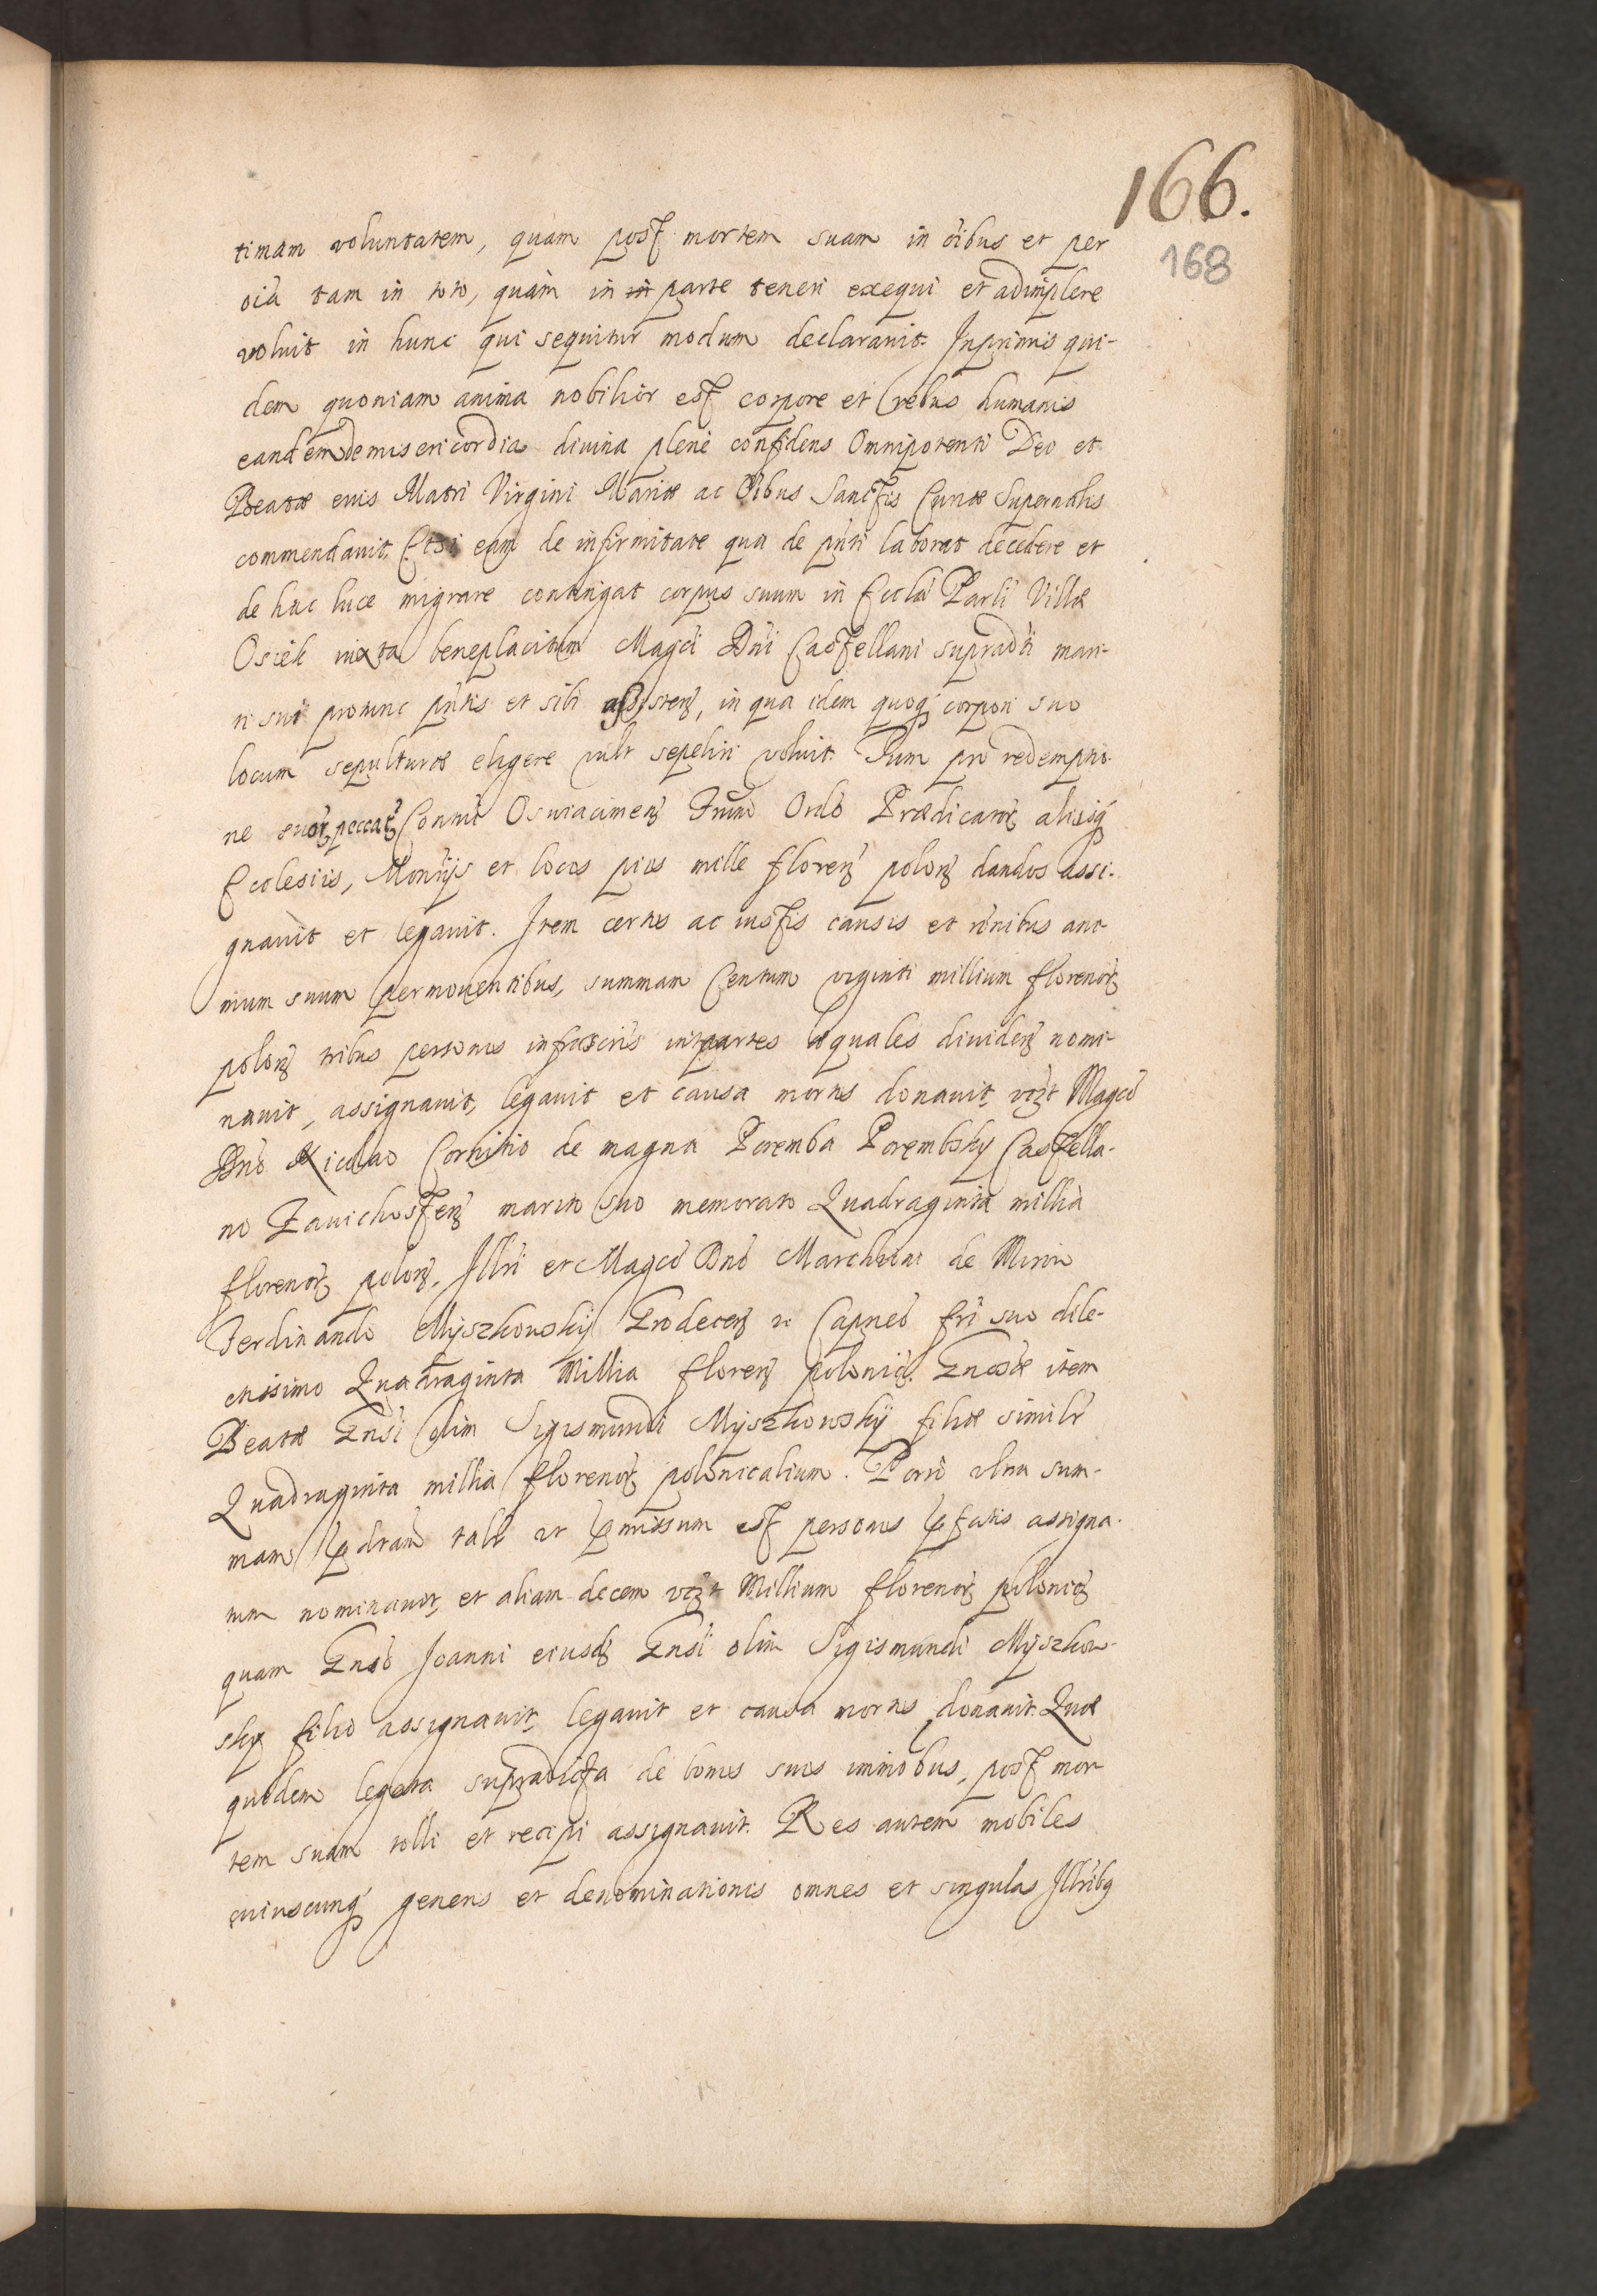 166.
168
timam voluntatem, quam post mortem suam in oibus et per
oia tam in toto, quàm in in parte teneri exequi et adimplere
voluit in hunc qui sequitur modum declarauit. Inprimis qui-
dem quoniam anima nobilior est corpore et rebus humanis
eandem de misericordia diuina plenè confidens Omnipotenti Deo et
Beatæ eius Matri Virgini Mariæ ac Oibus Sanctis Curiæ Supernalis
commendauit. Etsi eam de infirmitate qua de pnti laborat decedere et
de hac luce migrare contingat corpus suum in Eccla Parli Villæ
Osiek iuxta beneplacitum Magci Dni Castellani supradti mari-
ti sui protunc pntis et sibi assisten, in qua idem quoq corpori suo
locum sepulturæ eligere vult sepeliri voluit. Tum pro redemptio-
ne suor peccat Conuti Osuiacimen Frum Ordo Prædicator alijsq
Ecclesiis, Montrijs et locis pijs mille floren polon dandos assi-
gnauit et legauit. Item certis ac iustis causis et rônibus ani-
mum suum permouentibus, summam Centum viginti millium florenor
polon tribus personis infrascris in partes æquales diuiden nomi-
nauit, assignauit, legauit et causa mortis donauit, vczt Magco
Dno Nicolao Cornitio de magna Poremba Porembsky Castella-
no Zauichosten marito suo memorato Quadraginta millia
florenor polon, Illri et Magco Dno Marchioni de Mirow
Ferdinando Myszkowsky Grodecen et Capneo fri suo dile-
ctissimo Quadraginta Millia floren polonic. Gnosæ item
Beatæ Gnsi olim Sigismundi Myszkowsky filiæ similr
Quadraginta millia florenor polonicalium. Porrò vltra sum-
mam pdtam talr vt pmissum est personis pfatis assigna-
tum nominauit, et aliam decem vczt Millium florenor polonic
quam Gnso Joanni eiusd Gnsi olim Sigismundi Myszkow-
sky filio assignauit, legauit et causa mortis donauit. Quæ
quidem legata supradicta de bonis suis immobus, post mor-
tem suam tolli et recipi assignauit. Res autem mobiles
cuiuscunq generis et denominationis omnes et singulas Illribq